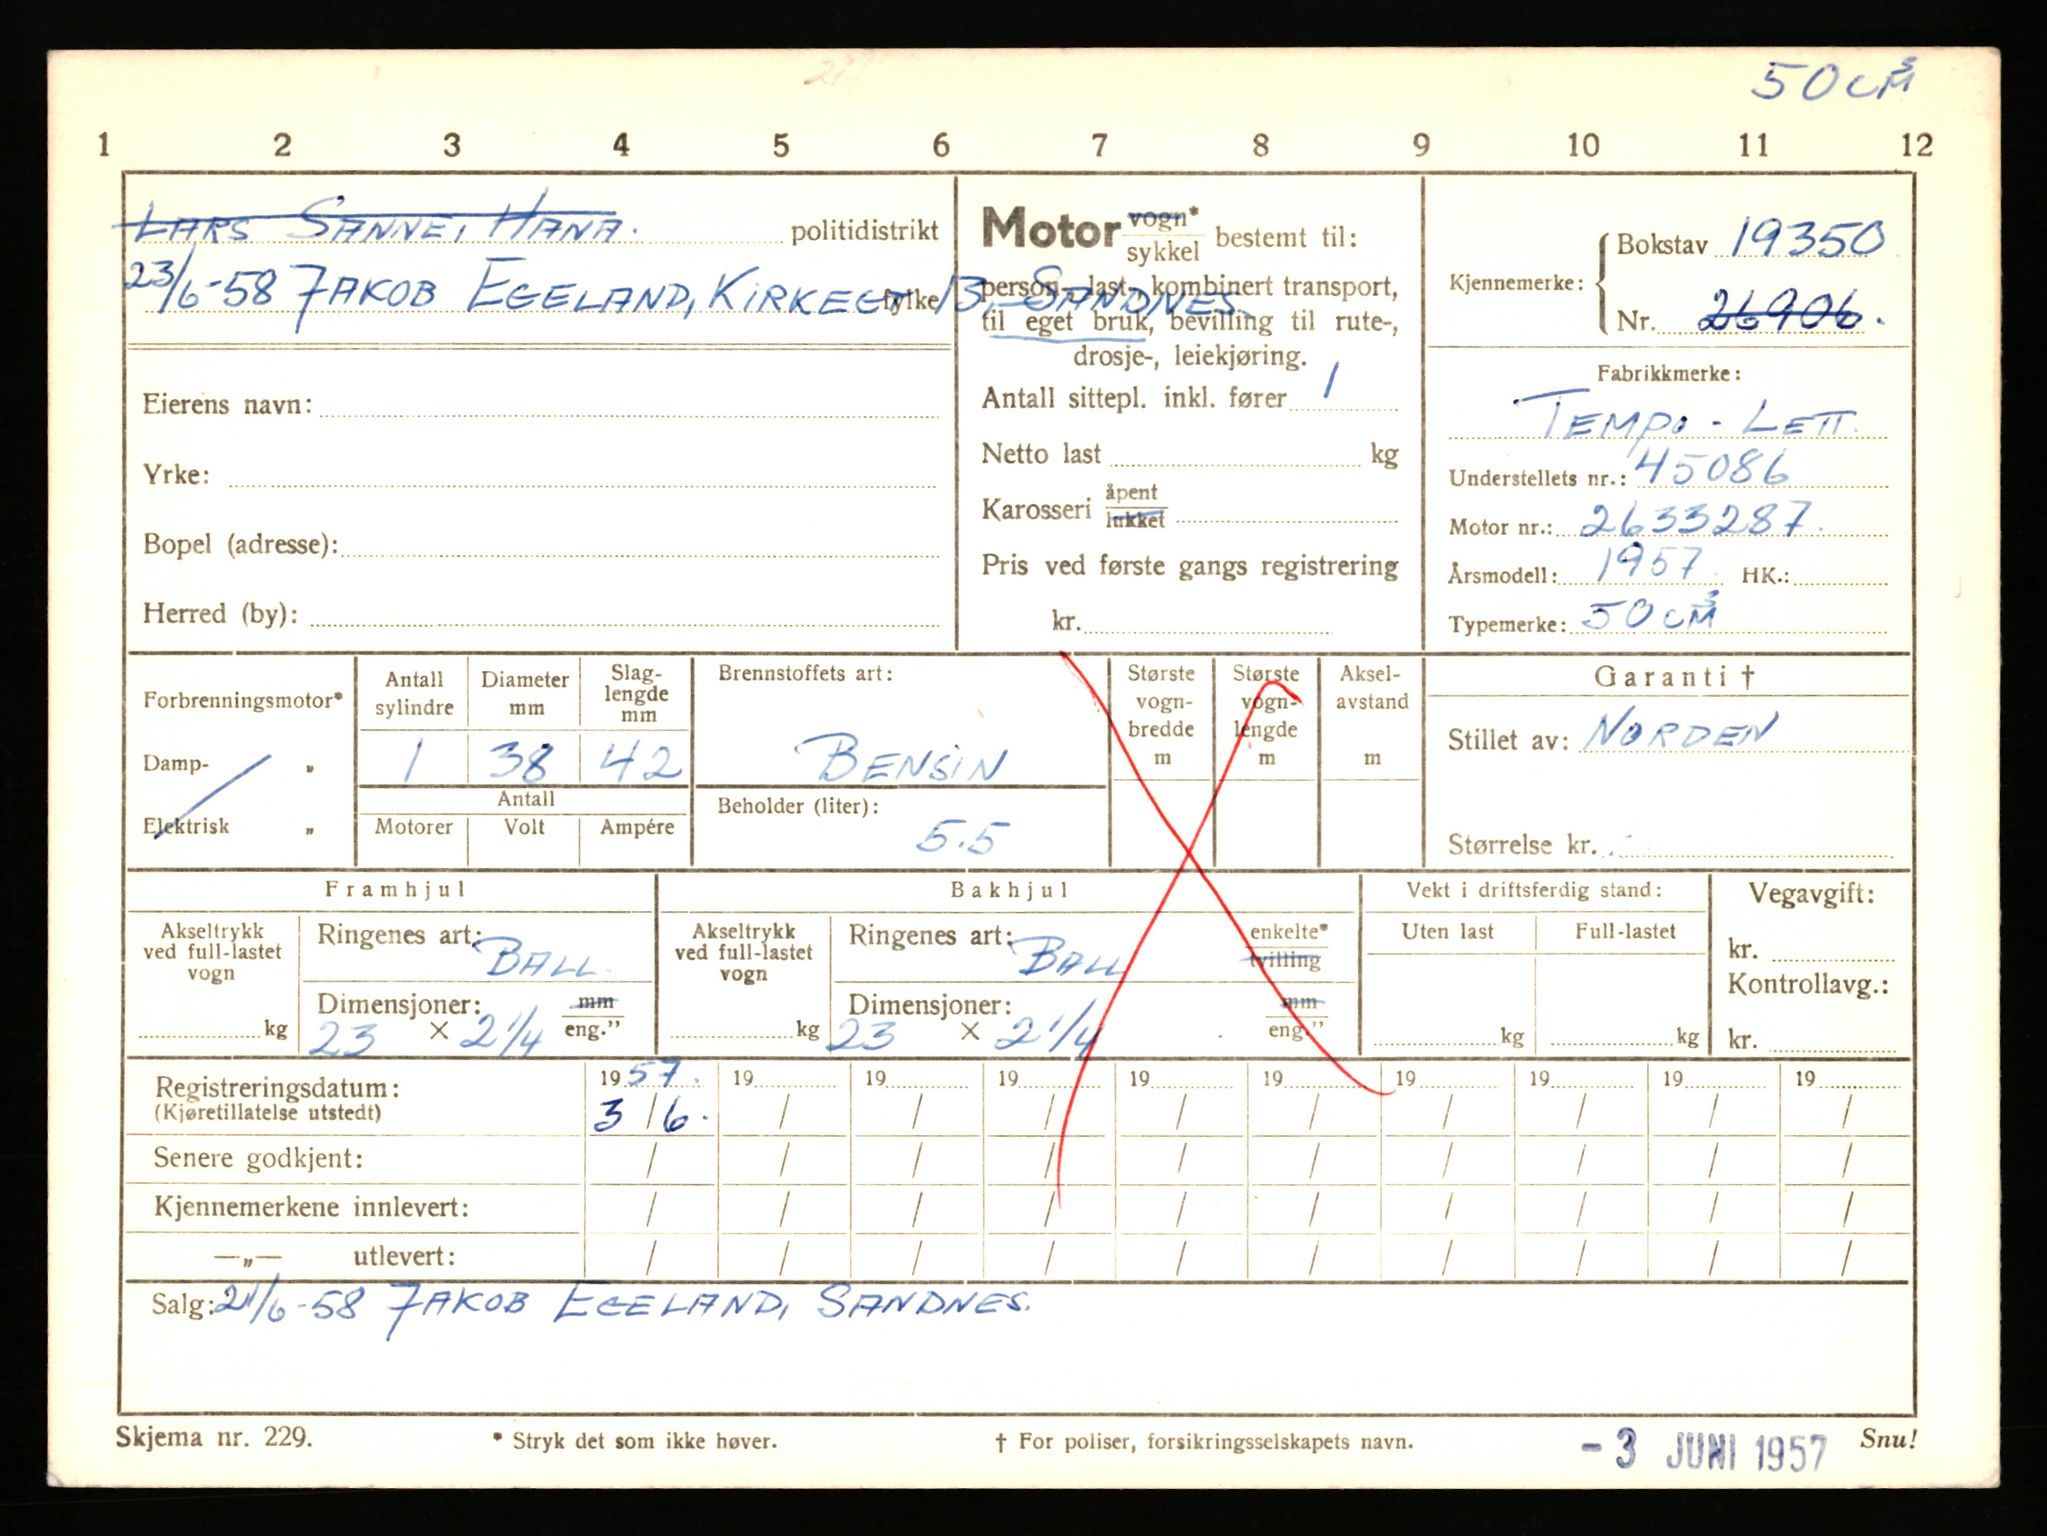 50 cm³
1 2 3 4 5 6 7 8 9 10 11 12
LARS SANNE, HANA. politidistrikt
23/6-58 JAKOB EGELAND, KIRKEGT 13, SANDNES.
fylke
Eierens navn:
Yrke:
Bopel (adresse):
Herred (by):
Motor vogn* / sykkel bestemt til:
person-, last-, kombinert transport,
til eget bruk, bevilling til rute-,
drosje-, leiekjøring.
Antall sittepl. inkl. fører 1
Netto last kg
Karosseri åpent / lukket
Pris ved første gangs registrering
kr.
Kjennemerke: Bokstav 19350
Nr. 26906.
Fabrikkmerke:
TEMPO - LETT.
Understellets nr.: 45086
Motor nr.: 2633287.
Årsmodell: 1957 HK.:
Typemerke: 50 cm³
Forbrenningsmotor*
Damp- „
Elektrisk „
Antall sylindre Diameter mm Slaglengde mm
1 38 42
Antall
Motorer Volt Ampére
Brennstoffets art:
BENSIN
Beholder (liter):
5.5
Største vogn-bredde m
Største vogn-lengde m
Aksel-avstand m
Garanti †
Stillet av: NORDEN
Størrelse kr.
Framhjul
Akseltrykk ved full-lastet vogn kg
Ringenes art: BALL.
Dimensjoner: mm / eng."
23 × 2 1/4
Bakhjul
Akseltrykk ved full-lastet vogn kg
Ringenes art: BALL enkelte* / tvilling
Dimensjoner: mm / eng."
23 × 2 1/4
Vekt i driftsferdig stand:
Uten last Full-lastet
kg kg
Vegavgift:
kr.
Kontrollavg.:
kr.
Registreringsdatum: 1957. 19 19 19 19 19 19 19 19 19
(Kjøretillatelse utstedt) 3/6. / / / / / / / / /
Senere godkjent: / / / / / / / / / /
Kjennemerkene innlevert: / / / / / / / / / /
—„— utlevert: / / / / / / / / / /
Salg: 21/6-58 JAKOB EGELAND, SANDNES.
Skjema nr. 229. * Stryk det som ikke høver. † For poliser, forsikringsselskapets navn. -3 JUNI 1957 Snu!